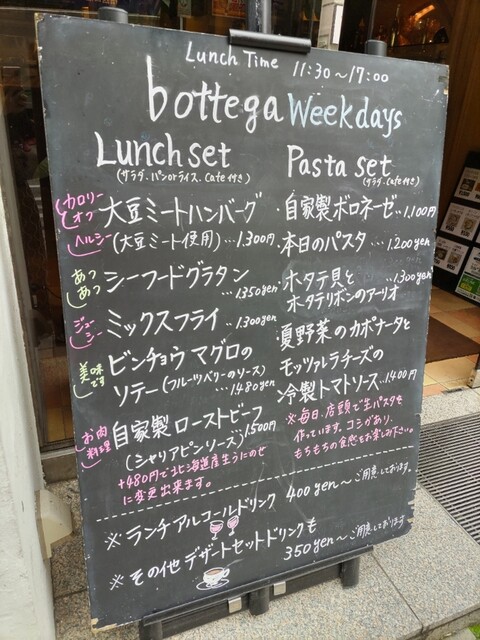 Lunch Time 11:30～17:00
bottega Weekdays
Lunch set
(サラダ、パンorライス、Cafe付き)
カロリーオフ
ヘルシー
大豆ミートハンバーグ
(大豆ミート使用)…1,300円
あつあつ
シーフードグラタン
…1350yen
ジューシー
ミックスフライ
…1,300yen
美味です
ビンチョウマグロの
ソテー(フルーツベリーのソース)
…1,480yen
お肉料理
自家製ローストビーフ
(シャリアピンソース)…1,500円
+480円で北海道産生うにのせ
に変更出来ます。
Pasta set
(サラダ、Cafe付き)
・自家製ボロネーゼ…1,100円
・本日のパスタ…1,200yen
・ホタテ貝と…1,300yen
ホタテリボンのアーリオ
・夏野菜のカポナータと
モッツァレラチーズの
冷製トマトソース…1,400円
※毎日、店頭で生パスタを
作っています。コシがあり、
もちもちの食感をお楽しみ下さい。
※ランチアルコールドリンク 400yen～ご用意しております。
※その他デザートセットドリンクも
350yen～ご用意しております